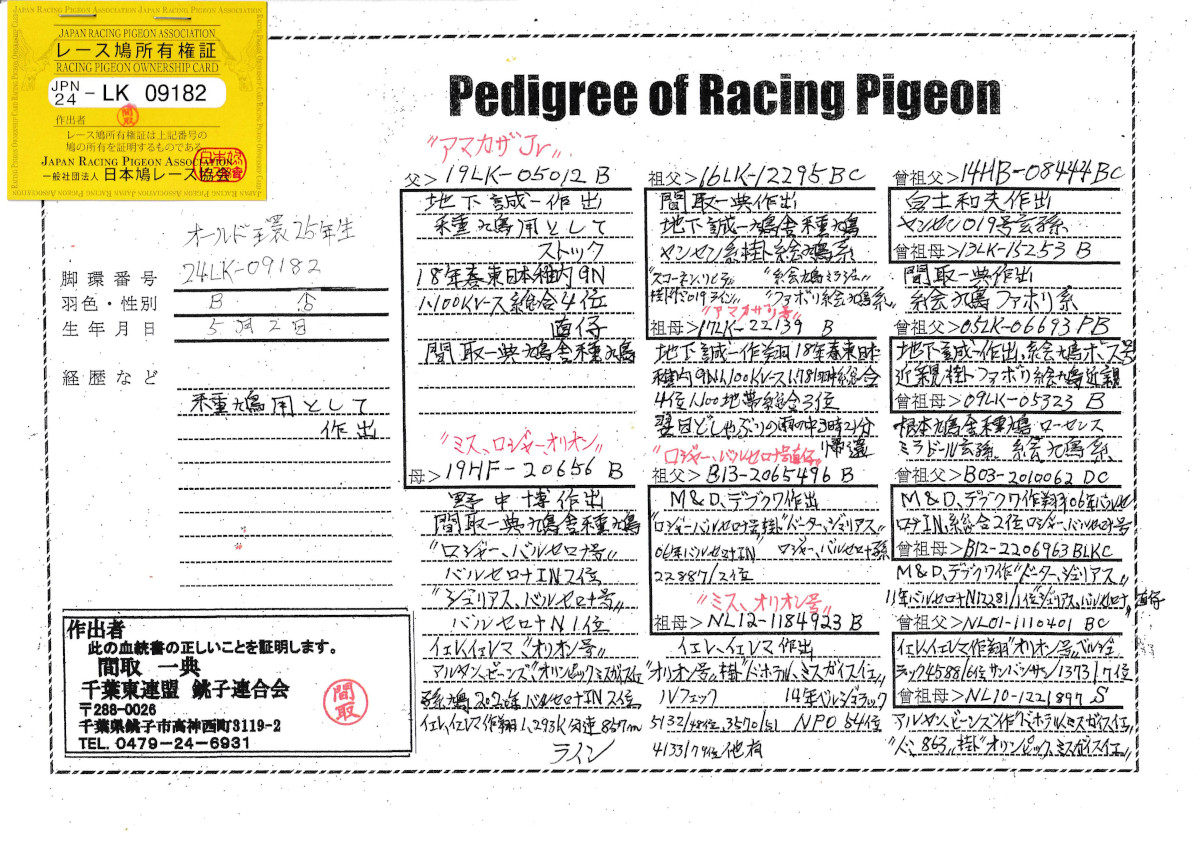 JAPAN RACING PIGEON ASSOCIATION
レース鳩所有権証
RACING PIGEON OWNERSHIP CARD
JPN 24 - LK 09182
作出者
間取
レース鳩所有権証は上記番号の
鳩の所有を証明するものである。
JAPAN RACING PIGEON ASSOCIATION
一般社団法人 日本鳩レース協会
Pedigree of Racing Pigeon
オールド環25年生
脚環番号 24LK-09182
羽色・性別 B ♂
生年月日 5月2日
経歴など
種鳩用として
作出
作出者
此の血統書の正しいことを証明します。
間取 一典
千葉東連盟 銚子連合会
〒288-0026
千葉県銚子市高神西町3119-2
TEL. 0479-24-6931
間取
"アマカザJr"
父> 19LK-05012 B
地下誠一作出
種鳩用として
ストック
18年春東日本稚内9N
1,100Kレース総合4位
直仔
間取一典鳩舎種鳩
"ミス、ロジャーオリオン"
母> 19HF-20656 B
野中博作出
間取一典鳩舎種鳩
"ロジャー、バルセロナ号"
バルセロナIN2位
"ジュリアス、バルセロナ号"
バルセロナN1位
イェレ、イェレマ"オリオン号"
アルダン、ビーンズ"オリンピックミスガイスイェ
孫鳩2020年バルセロナIN2位
イェレ、イェレマ作翔1,293K分速867m
ライン
祖父> 16LK-12295 BC
間取一典作出
地下誠一鳩舎種鳩
ヤンセン系掛絵鳩系
"ファボリ絵鳩系"
"アマカザリ号"
祖母> 17LK-22139 B
地下誠一作翔18年春東日本
稚内9N1,100Kレース1,781羽総合
4位1,100地帯総合3位
翌日どしゃぶりの雨の中3時21分
帰還
"ロジャー、バルセロナ号直仔"
祖父> B13-2065496 B
M&D、デブクワ作出
"ロジャーバルセロナ号掛"ドーター、ジュリアス"
06年バルセロナIN" ロジャー、バルセロナ孫
22887/2位
"ミス、オリオン号"
祖母> NL12-1184923 B
イェレ、イェレマ作出
"オリオン号"掛"ドホテル、ミスガイスイェ
ルフェック 14年ベルジュラック
5132/48位、3570/51 NPO 54位
4133/79位他有
曾祖父> 14HB-08444 BC
白土和夫作出
ヤンセン019号玄孫
曾祖母> 13LK-15253 B
間取一典作出
絵鳩ファボリ系
曾祖父> 05LK-06693 PB
地下誠一作出、絵鳩ボス号
近親掛ファボリ絵鳩近親
曾祖母> 09LK-05323 B
根本鳩舎種鳩 ローセンス
ミラドール玄孫 絵鳩系
曾祖父> B03-2010062 DC
M&D、デブクワ作翔06年バルセ
ロナIN、総合2位ロジャー、バルセロナ号
曾祖母> B12-2206963 BLKC
M&D、デブクワ作"ドーター、ジュリアス"
11年バルセロナN12281/1位"ジュリアス、バルセロナ"直仔
曾祖父> NL01-1110401 BC
イェレ、イェレマ作翔"オリオン号"ベルジュ
ラック4588/6位サンバンサン/1373/17位
曾祖母> NL10-1221897 S
アルダン、ビーンズ作"ドホテルミスガイスイェ"
"ド、863"掛"オリンピック、ミスガイスイェ"